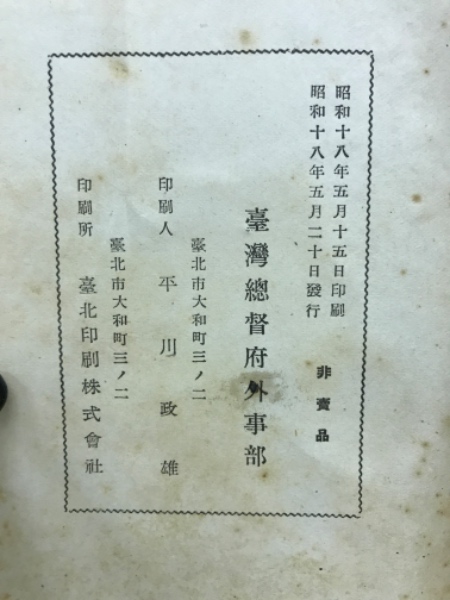 昭和十八年五月十五日印刷
昭和十八年五月二十日發行
非賣品
臺灣總督府外事部
臺北市大和町三ノ二
印刷人 平川政雄
臺北市大和町三ノ二
印刷所 臺北印刷株式會社